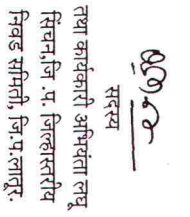 सदस्य
तथा कार्यकारी अभियंता लघु
सिंचन,जि. प. जिल्हास्तरीय
निवड समिती, जि.प.लातूर.